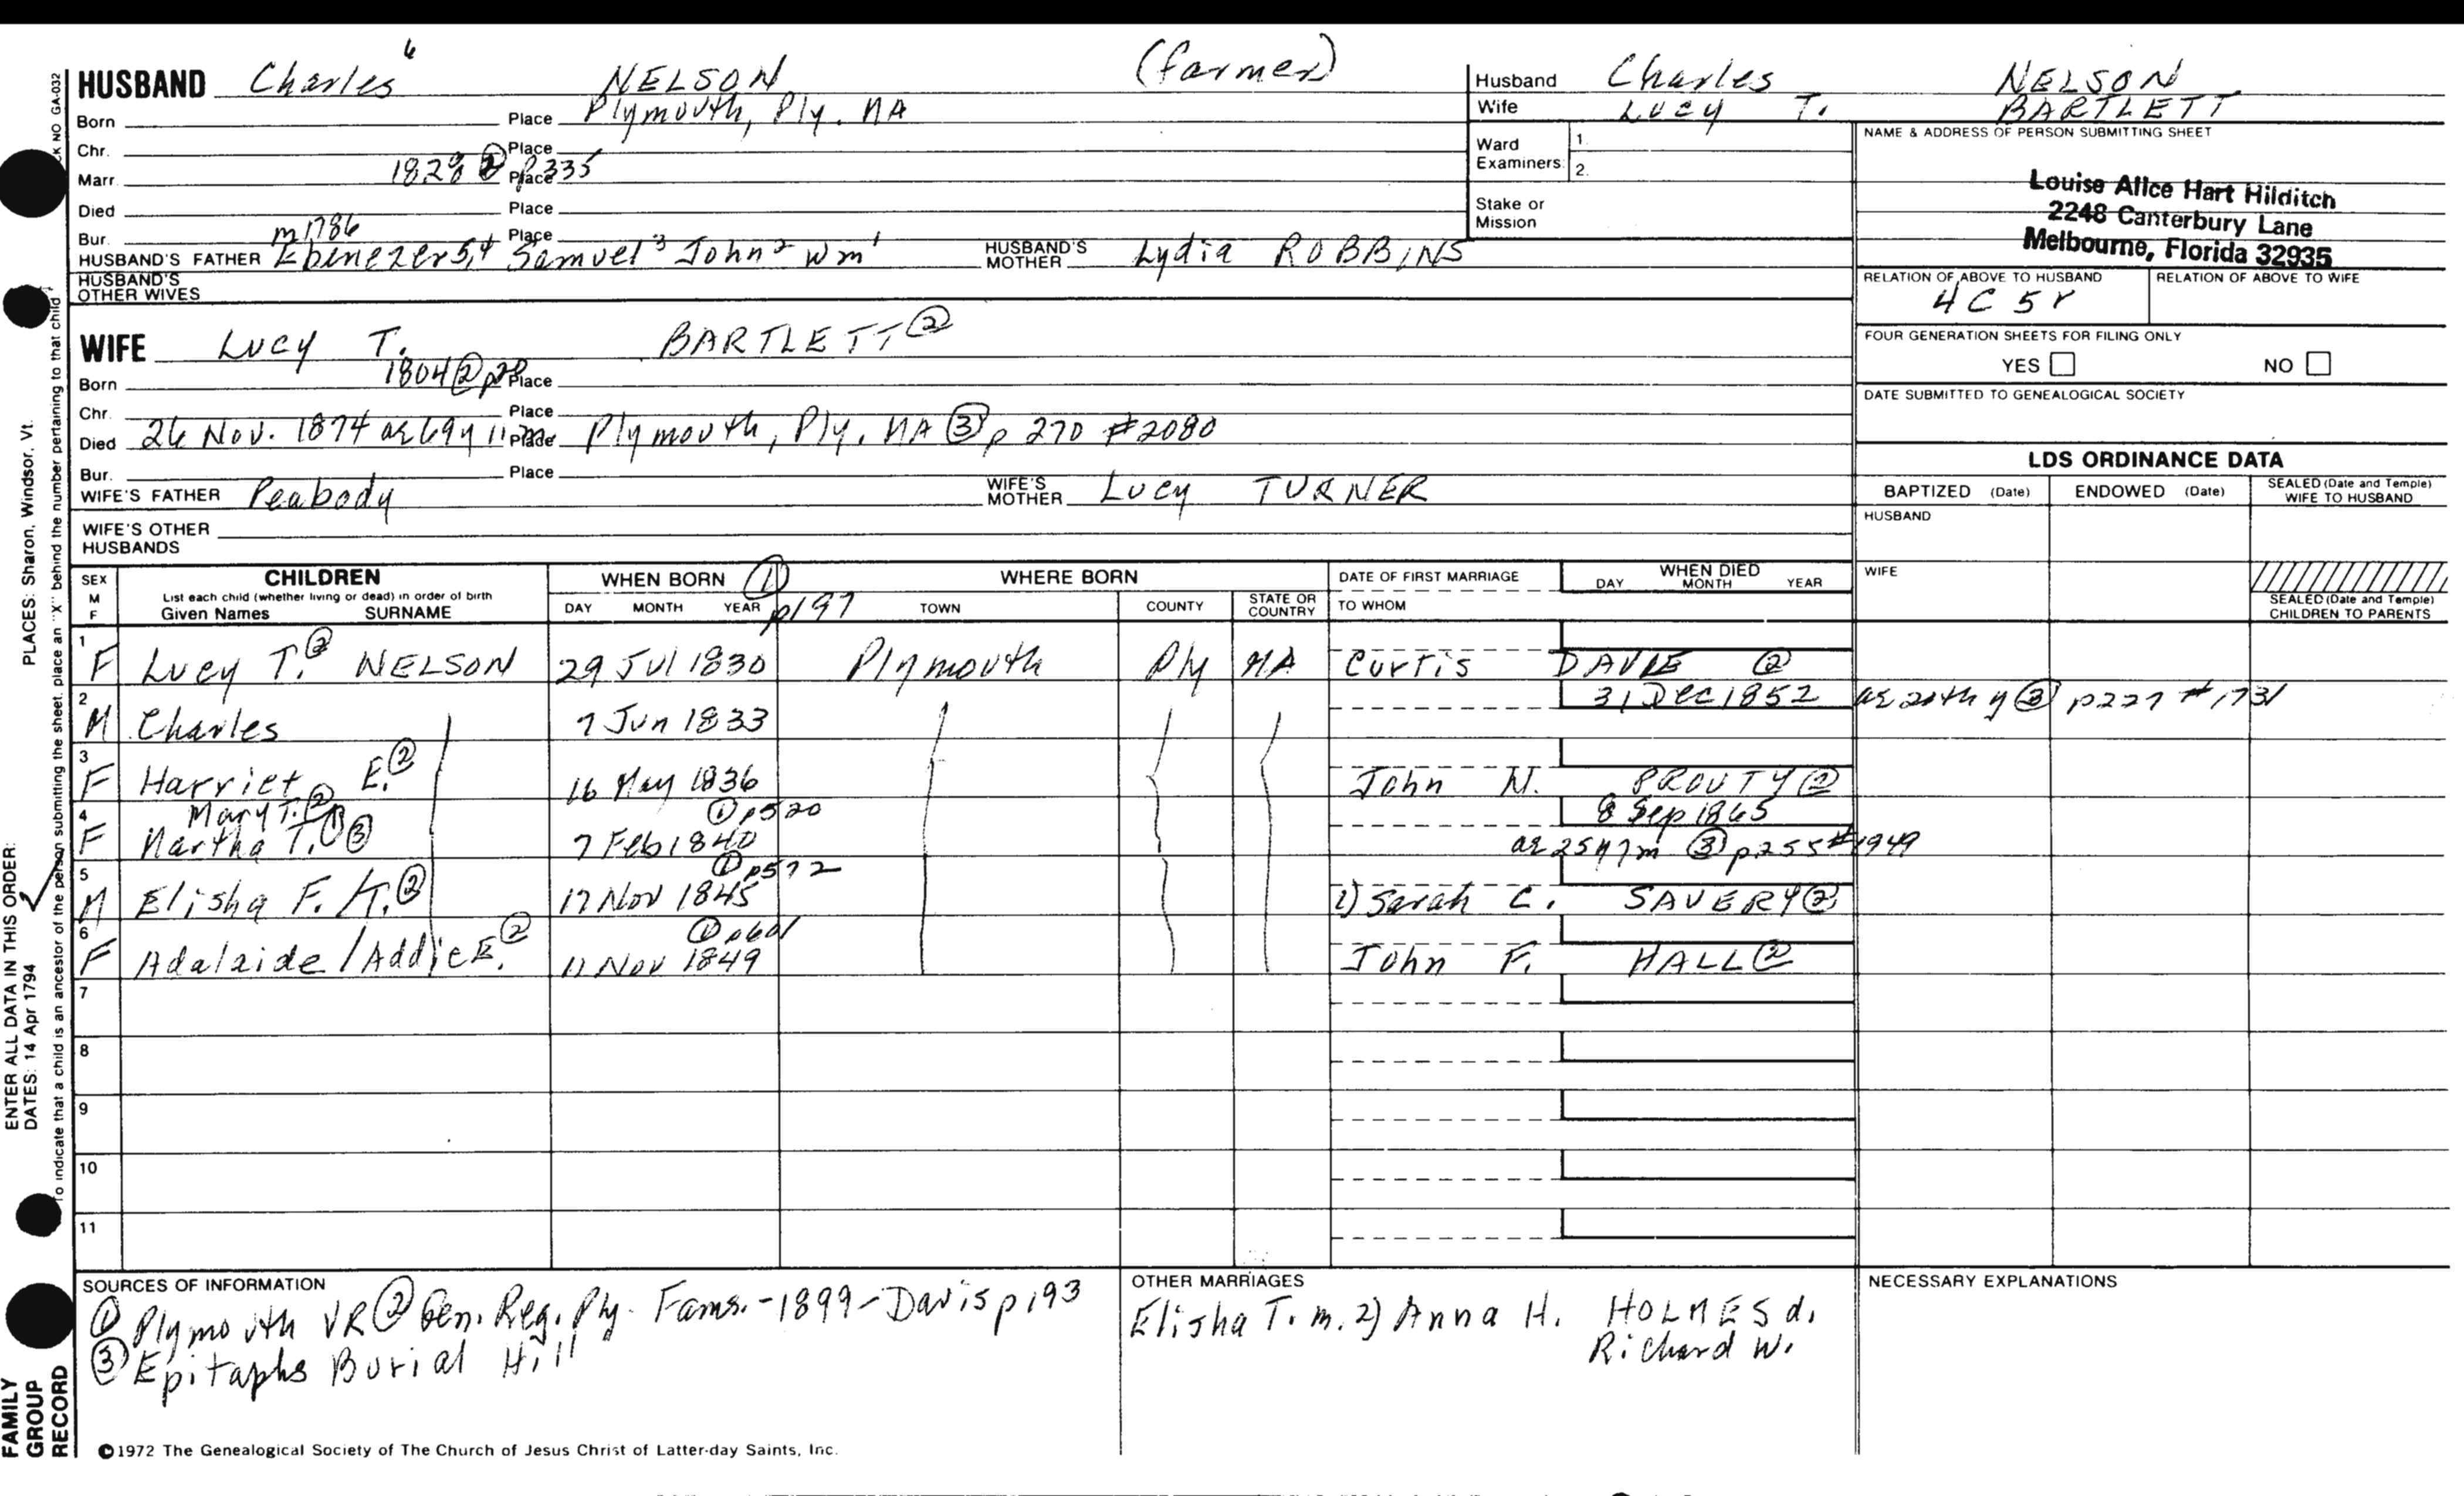 HUSBAND Charles 6 NELSON (farmer)
Born Place Plymouth, Ply. MA
Chr. Place
Marr. 1828 ② p335 Place
Died Place
Bur. Place
m 1786
HUSBAND'S FATHER Ebenezer 5,4 Samuel 3 John 2 Wm 1 HUSBAND'S MOTHER Lydia ROBBINS
HUSBAND'S OTHER WIVES
WIFE Lucy T. BARTLETT ②
Born 1804 ② Place
Chr. Place
Died 26 Nov. 1874 ae 69y 11m Place Plymouth, Ply. MA ③ p 270 #2080
Bur. Place
WIFE'S FATHER Peabody WIFE'S MOTHER Lucy TURNER
WIFE'S OTHER HUSBANDS
Husband Charles NELSON
Wife Lucy T. BARTLETT
Ward Examiners: 1. 2.
Stake or Mission
NAME & ADDRESS OF PERSON SUBMITTING SHEET
Louise Alice Hart Hilditch
2248 Canterbury Lane
Melbourne, Florida 32935
RELATION OF ABOVE TO HUSBAND RELATION OF ABOVE TO WIFE
4 C 5 r
FOUR GENERATION SHEETS FOR FILING ONLY
YES NO
DATE SUBMITTED TO GENEALOGICAL SOCIETY
LDS ORDINANCE DATA
BAPTIZED (Date) ENDOWED (Date) SEALED (Date and Temple) WIFE TO HUSBAND
HUSBAND
WIFE
SEALED (Date and Temple) CHILDREN TO PARENTS
SEX M F CHILDREN WHEN BORN ① p197 WHERE BORN DATE OF FIRST MARRIAGE WHEN DIED
List each child (whether living or dead) in order of birth
Given Names SURNAME DAY MONTH YEAR TOWN COUNTY STATE OR COUNTRY TO WHOM DAY MONTH YEAR
1 F Lucy T. ② NELSON 29 Jul 1830 Plymouth Ply MA Curtis DAVIE ②
2 M Charles 7 Jun 1833 31 Dec 1852 ae 20th y ③ p227 #1731
3 F Harriet E. ② 16 May 1836 John N. PROUTY ②
Mary T. ② ① p520 8 Sep 1865
4 F Martha T. ① ③ 7 Feb 1840 ae 25y 7m ③ p255 #1949
① p572
5 M Elisha F. /T. ② 17 Nov 1845 1) Sarah C. SAVERY ②
① p601
6 F Adalaide / Addie E. ② 11 Nov 1849 John F. HALL ②
7
8
9
10
11
SOURCES OF INFORMATION
① Plymouth VR ② Gen. Reg. Ply. Fams. - 1899 - Davis p193
③ Epitaphs Burial Hill
OTHER MARRIAGES
Elisha T. m. 2) Anna H. HOLMES d.
Richard W.
NECESSARY EXPLANATIONS
©1972 The Genealogical Society of The Church of Jesus Christ of Latter-day Saints, Inc.
FAMILY GROUP RECORD
ENTER ALL DATA IN THIS ORDER:
DATES: 14 Apr 1794 PLACES: Sharon, Windsor, Vt.
To indicate that a child is an ancestor of the person submitting the sheet, place an "X" behind the number pertaining to that child
NO GA-032